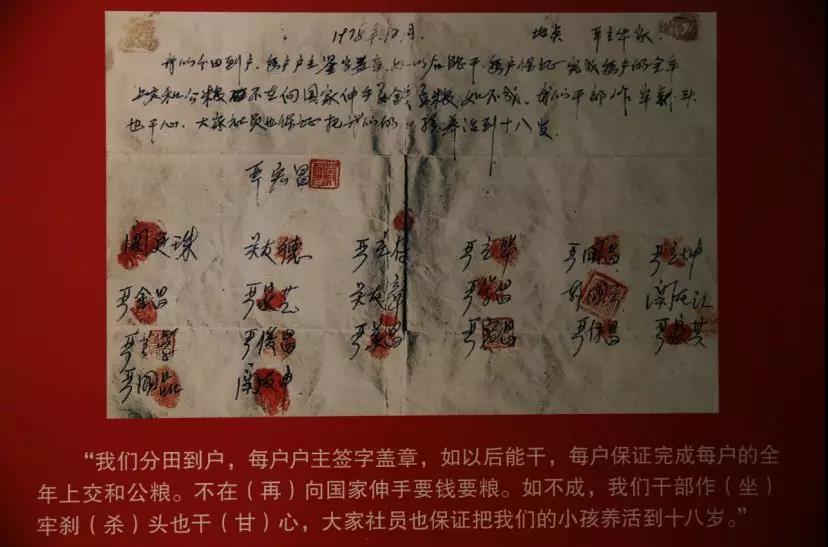 1978年12月 地点 严立华家
我们分田到户,每户户主签字盖章,如以后能干,每户保证完成每户的全年
上交和公粮 不在向国家伸手要钱要粮,如不成,我们干部作牢刹头
也干心,大家社员也保证把我们的小孩养活到十八岁。
严宏昌
关廷珠 关友德 严立符 严立华 严国昌 严立坤
严金昌 严家芝 关友章 严学昌 韩国云 关友江
严立学 严俊昌 严美昌 严宏昌 严付昌 严家其
严国品 关友申
“我们分田到户,每户户主签字盖章,如以后能干,每户保证完成每户的全
年上交和公粮。不在(再)向国家伸手要钱要粮。如不成,我们干部作(坐)
牢刹(杀)头也干(甘)心,大家社员也保证把我们的小孩养活到十八岁。”